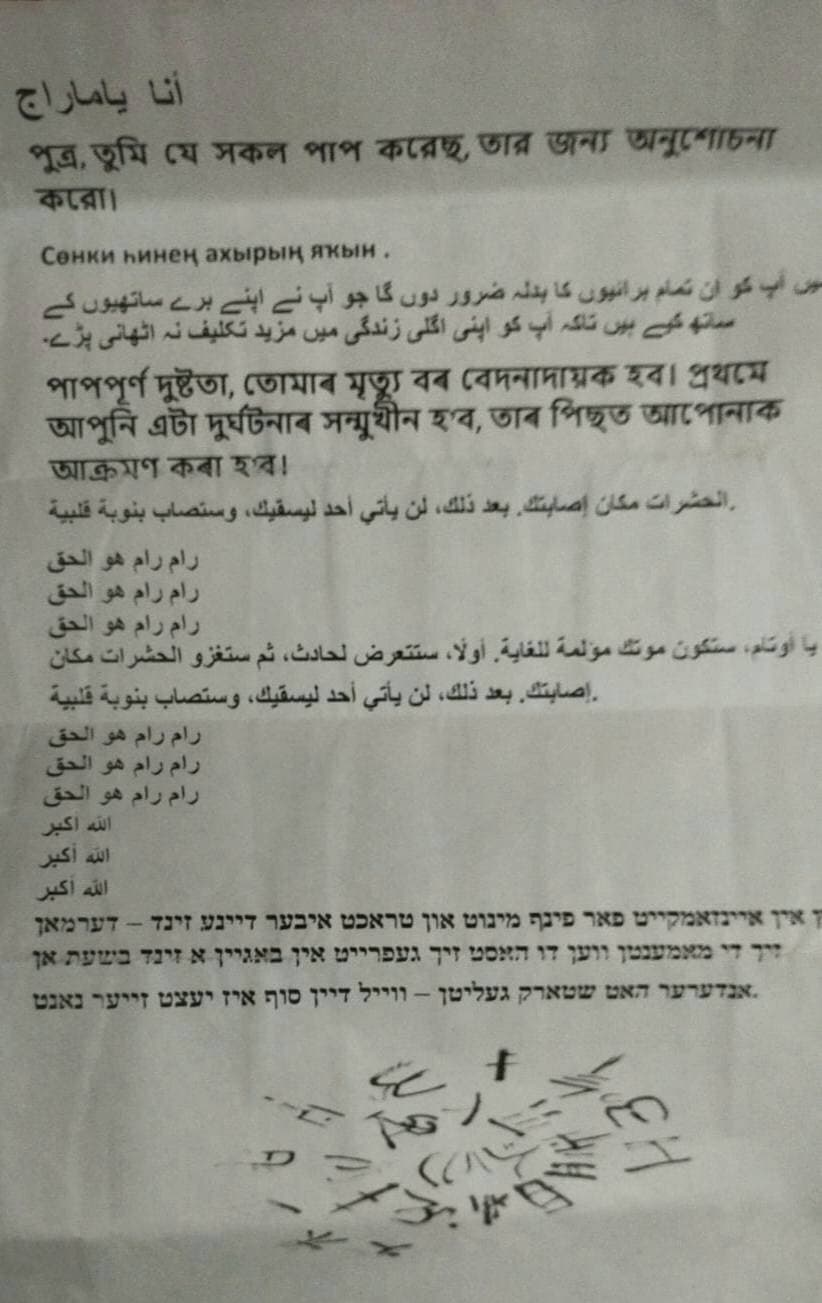 أنا ياماراج
পুত্র, তুমি যে সকল পাপ করেছ, তার জন্য অনুশোচনা
করো।
Сөнки һинең ахырың яҡын .
میں آپ کو ان تمام برائیوں کا بدلہ ضرور دوں گا جو آپ نے اپنے برے ساتھیوں کے
ساتھ کیے ہیں تاکہ آپ کو اپنی اگلی زندگی میں مزید تکلیف نہ اٹھانی پڑے۔
পাপপূর্ণ দুষ্টতা, তোমাৰ মৃত্যু বৰ বেদনাদায়ক হব। প্ৰথমে
আপুনি এটা দুৰ্ঘটনাৰ সন্মুখীন হ'ব, তাৰ পিছত আপোনাক
আক্ৰমণ কৰা হ'ব।
الحشرات مكان إصابتك. بعد ذلك، لن يأتي أحد ليسقيك، وستصاب بنوبة قلبية.
رام رام هو الحق
رام رام هو الحق
رام رام هو الحق
يا أوتام، ستكون موتك مؤلمة للغاية. أولًا، ستتعرض لحادث، ثم ستغزو الحشرات مكان
إصابتك. بعد ذلك، لن يأتي أحد ليسقيك، وستصاب بنوبة قلبية.
رام رام هو الحق
رام رام هو الحق
رام رام هو الحق
الله اكبر
الله أكبر
الله أكبر
אין איינזאמקייט פאר פינף מינוט און טראכט איבער דיינע זינד – דערמאן
זיך די מאמענטן ווען דו האסט זיך געפרייט אין באגיין א זינד בשעת אן
אנדערער האט שטארק געליטן – ווייל דיין סוף איז יעצט זייער נאנט.